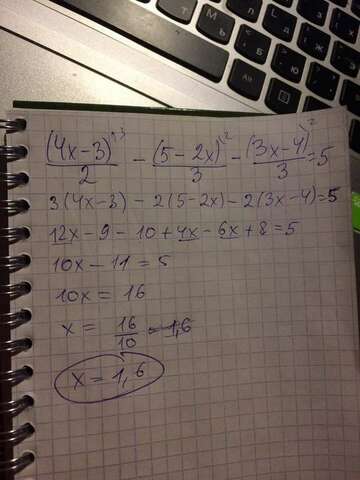 (4x-3)^3/2 - (5-2x)^2/3 - (3x-4)^2/3 = 5
3(4x-3) - 2(5-2x) - 2(3x-4) = 5
12x - 9 - 10 + 4x - 6x + 8 = 5
10x - 11 = 5
10x = 16
x = 16/10 = 1,6
x = 1,6